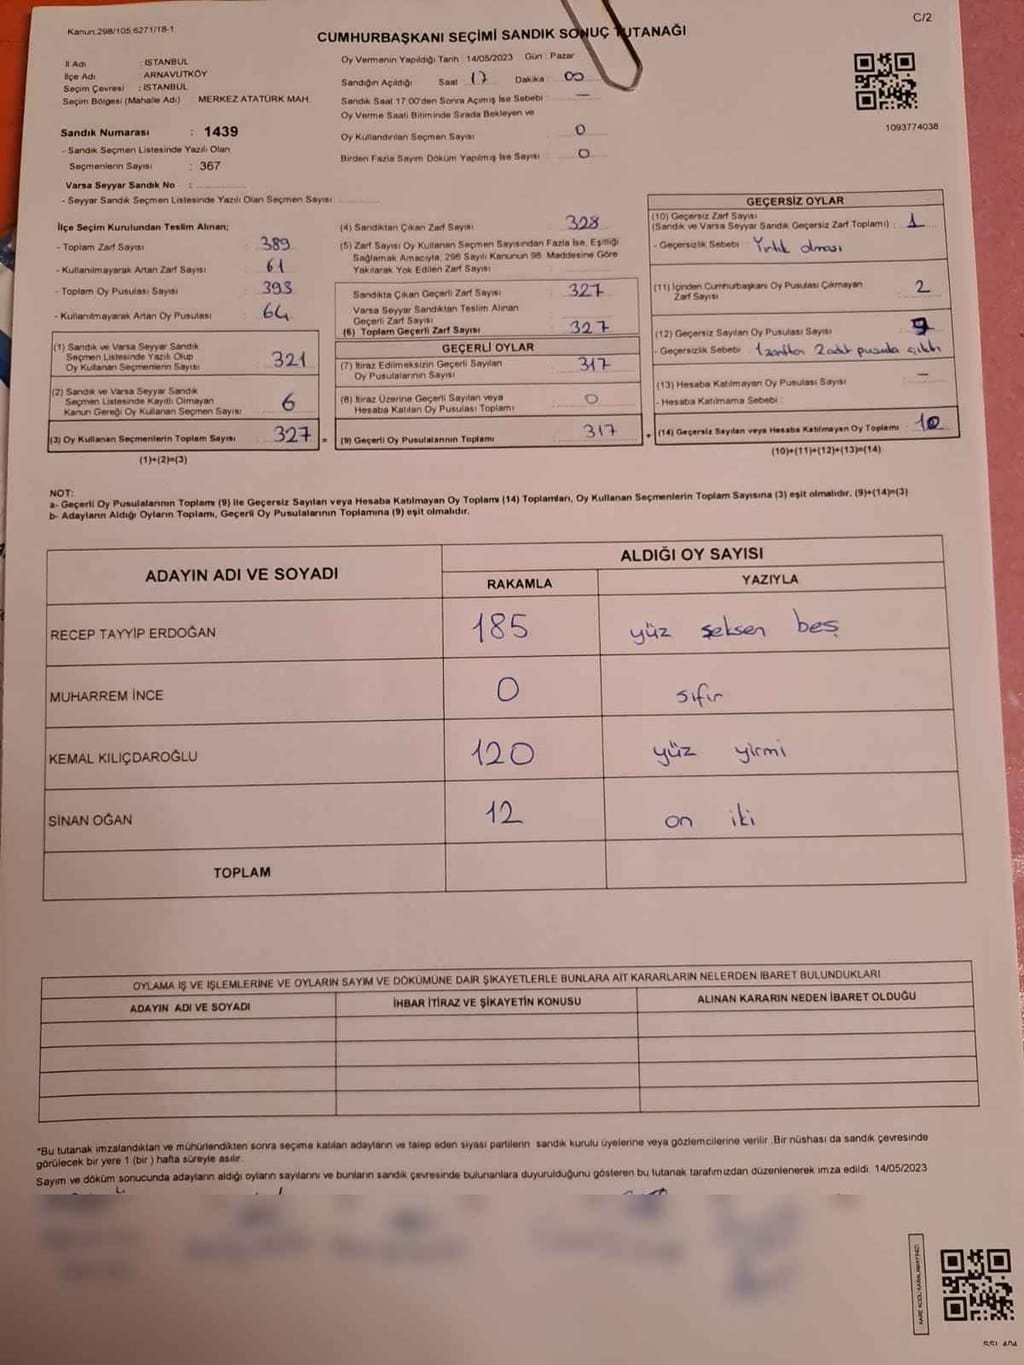 Kanun;298/105;6271/18-1
C/2
CUMHURBAŞKANI SEÇİMİ SANDIK SONUÇ TUTANAĞI
İl Adı : İSTANBUL
İlçe Adı : ARNAVUTKÖY
Seçim Çevresi : İSTANBUL
Seçim Bölgesi (Mahalle Adı) : MERKEZ ATATÜRK MAH.
Sandık Numarası : 1439
- Sandık Seçmen Listesinde Yazılı Olan
Seçmenlerin Sayısı : 367
Varsa Seyyar Sandık No :
- Seyyar Sandık Seçmen Listesinde Yazılı Olan Seçmen Sayısı
Oy Vermenin Yapıldığı Tarih : 14/05/2023 Gün : Pazar
Sandığın Açıldığı Saat 17 Dakika 00
Sandık Saat 17:00'den Sonra Açımış İse Sebebi : —
Oy Verme Saati Bitiminde Sırada Bekleyen ve
Oy Kullandırılan Seçmen Sayısı : 0
Birden Fazla Sayım Döküm Yapılmış İse Sayısı : 0
1093774038
İlçe Seçim Kurulundan Teslim Alınan;
- Toplam Zarf Sayısı 389
- Kullanılmayarak Artan Zarf Sayısı 61
- Toplam Oy Pusulası Sayısı 393
- Kullanılmayarak Artan Oy Pusulası 64
(1) Sandık ve Varsa Seyyar Sandık
Seçmen Listesinde Yazılı Olup
Oy Kullanan Seçmenlerin Sayısı 321
(2) Sandık ve Varsa Seyyar Sandık
Seçmen Listesinde Kayıtlı Olmayan
Kanun Gereği Oy Kullanan Seçmen Sayısı 6
(3) Oy Kullanan Seçmenlerin Toplam Sayısı 327 =
(1)+(2)=(3)
(4) Sandıktan Çıkan Zarf Sayısı 328
(5) Zarf Sayısı Oy Kullanan Seçmen Sayısından Fazla İse, Eşitliği
Sağlamak Amacıyla; 298 Sayılı Kanunun 98. Maddesine Göre
Yakılarak Yok Edilen Zarf Sayısı
Sandıkta Çıkan Geçerli Zarf Sayısı : 327
Varsa Seyyar Sandıktan Teslim Alınan
Geçerli Zarf Sayısı
(6) Toplam Geçerli Zarf Sayısı 327
GEÇERLİ OYLAR
(7) İtiraz Edilmeksizin Geçerli Sayılan
Oy Pusulalarının Sayısı 317
(8) İtiraz Üzerine Geçerli Sayılan veya
Hesaba Katılan Oy Pusulası Toplamı 0
(9) Geçerli Oy Pusulalarının Toplamı 317 +
GEÇERSİZ OYLAR
(10) Geçersiz Zarf Sayısı
(Sandık ve Varsa Seyyar Sandık Geçersiz Zarf Toplamı) : 1
- Geçersizlik Sebebi : Yırtık olması
(11) İçinden Cumhurbaşkanı Oy Pusulası Çıkmayan
Zarf Sayısı 2
(12) Geçersiz Sayılan Oy Pusulası Sayısı
- Geçersizlik Sebebi : 1 zarftan 2 adet pusula çıktı
(13) Hesaba Katılmayan Oy Pusulası Sayısı —
- Hesaba Katılmama Sebebi
(14) Geçersiz Sayılan veya Hesaba Katılmayan Oy Toplamı 10
(10)+(11)+(12)+(13)=(14)
NOT:
a- Geçerli Oy Pusulalarının Toplamı (9) ile Geçersiz Sayılan veya Hesaba Katılmayan Oy Toplamı (14) Toplamları, Oy Kullanan Seçmenlerin Toplam Sayısına (3) eşit olmalıdır. (9)+(14)=(3)
b- Adayların Aldığı Oyların Toplamı, Geçerli Oy Pusulalarının Toplamına (9) eşit olmalıdır.
ADAYIN ADI VE SOYADI
ALDIĞI OY SAYISI
RAKAMLA YAZIYLA
RECEP TAYYİP ERDOĞAN 185 yüz seksen beş
MUHARREM İNCE 0 sıfır
KEMAL KILIÇDAROĞLU 120 yüz yirmi
SİNAN OĞAN 12 on iki
TOPLAM
OYLAMA İŞ VE İŞLEMLERİNE VE OYLARIN SAYIM VE DÖKÜMÜNE DAİR ŞİKAYETLERLE BUNLARA AİT KARARLARIN NELERDEN İBARET BULUNDUKLARI
ADAYIN ADI VE SOYADI İHBAR İTİRAZ VE ŞİKAYETİN KONUSU ALINAN KARARIN NEDEN İBARET OLDUĞU
*Bu tutanak imzalandıktan ve mühürlendikten sonra seçime katılan adayların ve talep eden siyasi partilerin sandık kurulu üyelerine veya gözlemcilerine verilir .Bir nüshası da sandık çevresinde
görülecek bir yere 1 (bir ) hafta süreyle asılır.
Sayım ve döküm sonucunda adayların aldığı oyların sayılarını ve bunların sandık çevresinde bulunanlara duyurulduğunu gösteren bu tutanak tarafımızdan düzenlenerek imza edildi. 14/05/2023
KARE KODU KARALAMAYINIZ!